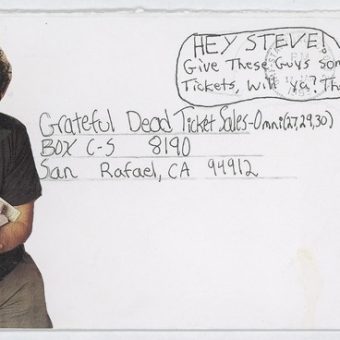 HEY STEVE!
Give These Guys Som
Tickets, Will Ya? Th
Grateful Dead Ticket Sales-Omni(27,29,30)
BOX C-S 8190
San Rafael, CA 94912